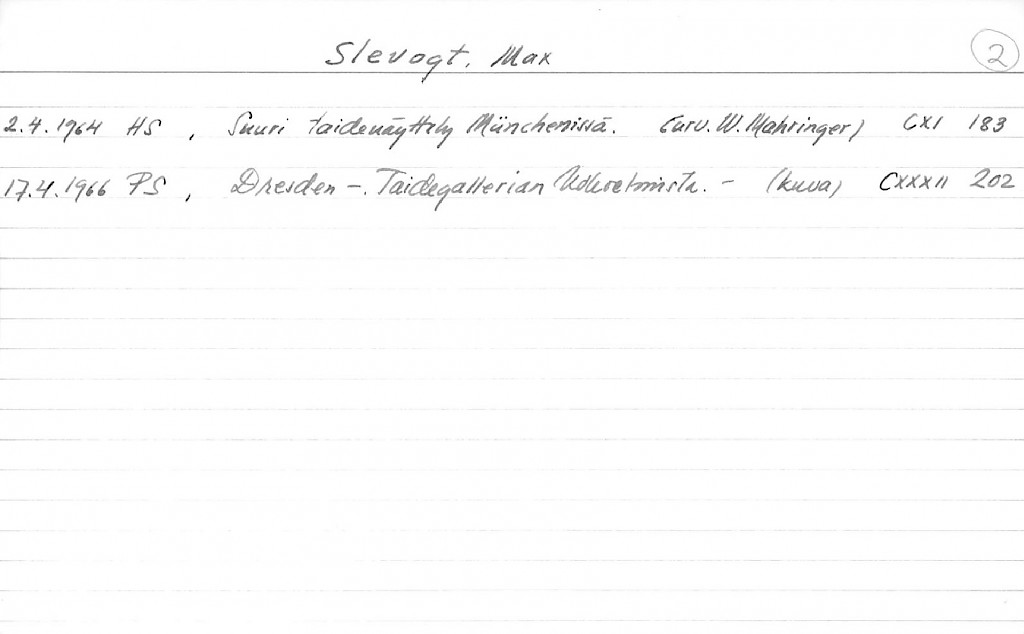 Slevogt, Max
2
2.4.1964 HS, Suuri taidenäyttely Münchenissä. (arv. W. Mahringer) CXI 183
17.4.1966 PS, Dresden -. Taidegallerian - (kuva) CXXXII 202